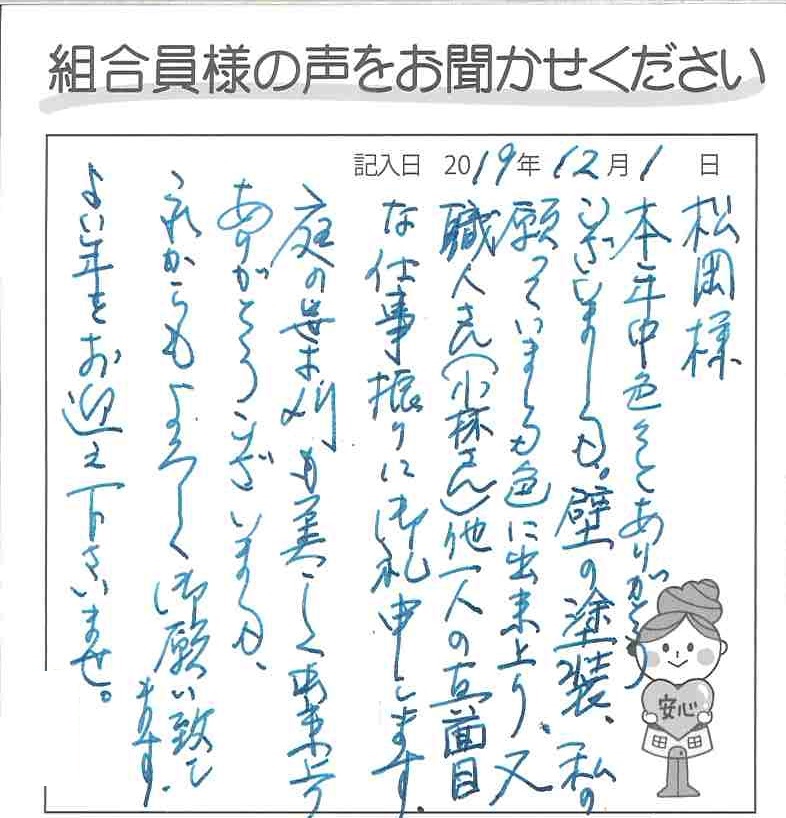 組合員様の声をお聞かせください
記入日 2019年12月1日
松岡様
本年中色々とありがとう
ございました。壁の塗装、私の
願っていました色に出来上り、又
職人さん(小林さん)他一人の真面目
な仕事振りに御礼申します。
庭の草木刈も美しく出来上り
ありがとうございました、
これからもよろしく御願い致し
ます。
よい年をお迎え下さいませ。
安心